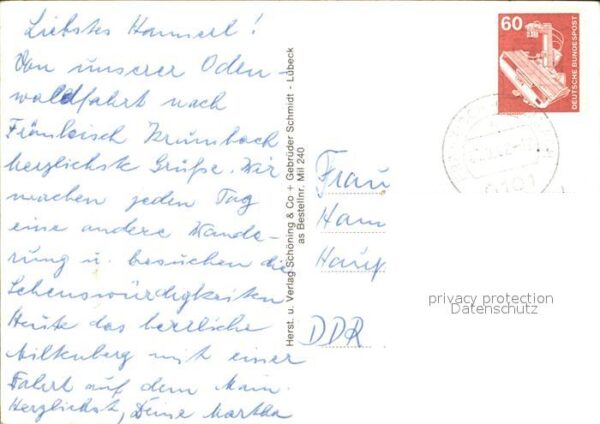 Liebstes Hannerl!
Von unserer Oden-
waldfahrt nach
Fränkisch Krumbach
herzlichste Grüße. Wir
machen jeden Tag
eine andere Wande-
rung u. besuchen die
Sehenswürdigkeiten
Heute das herrliche
Miltenberg mit einer
Fahrt auf dem Main.
Herzlichst, Deine Martha
Herst. u. Verlag Schöning & Co + Gebrüder Schmidt - Lübeck
as Bestellnr. Mil 240
60
DEUTSCHE BUNDESPOST
Frau
Hann
Hauf
DDR
privacy protection
Datenschutz